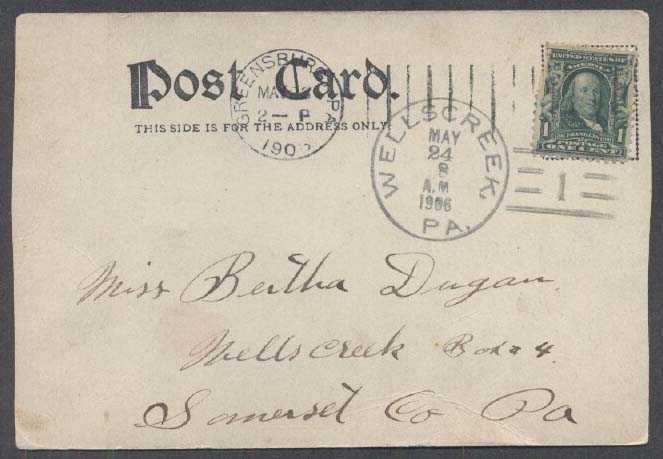 Post Card.
THIS SIDE IS FOR THE ADDRESS ONLY.
GREENSBURG PA
MAY
2 — P
190
WELLSCREEK, PA.
MAY
24
8
A.M
1906
1
UNITED STATES OF
AMERICA
1 1
FRANKLIN
POSTAGE
ONE CENT
Miss Bertha Dugan.
Wellscreek Box # 4.
Somerset Co Pa